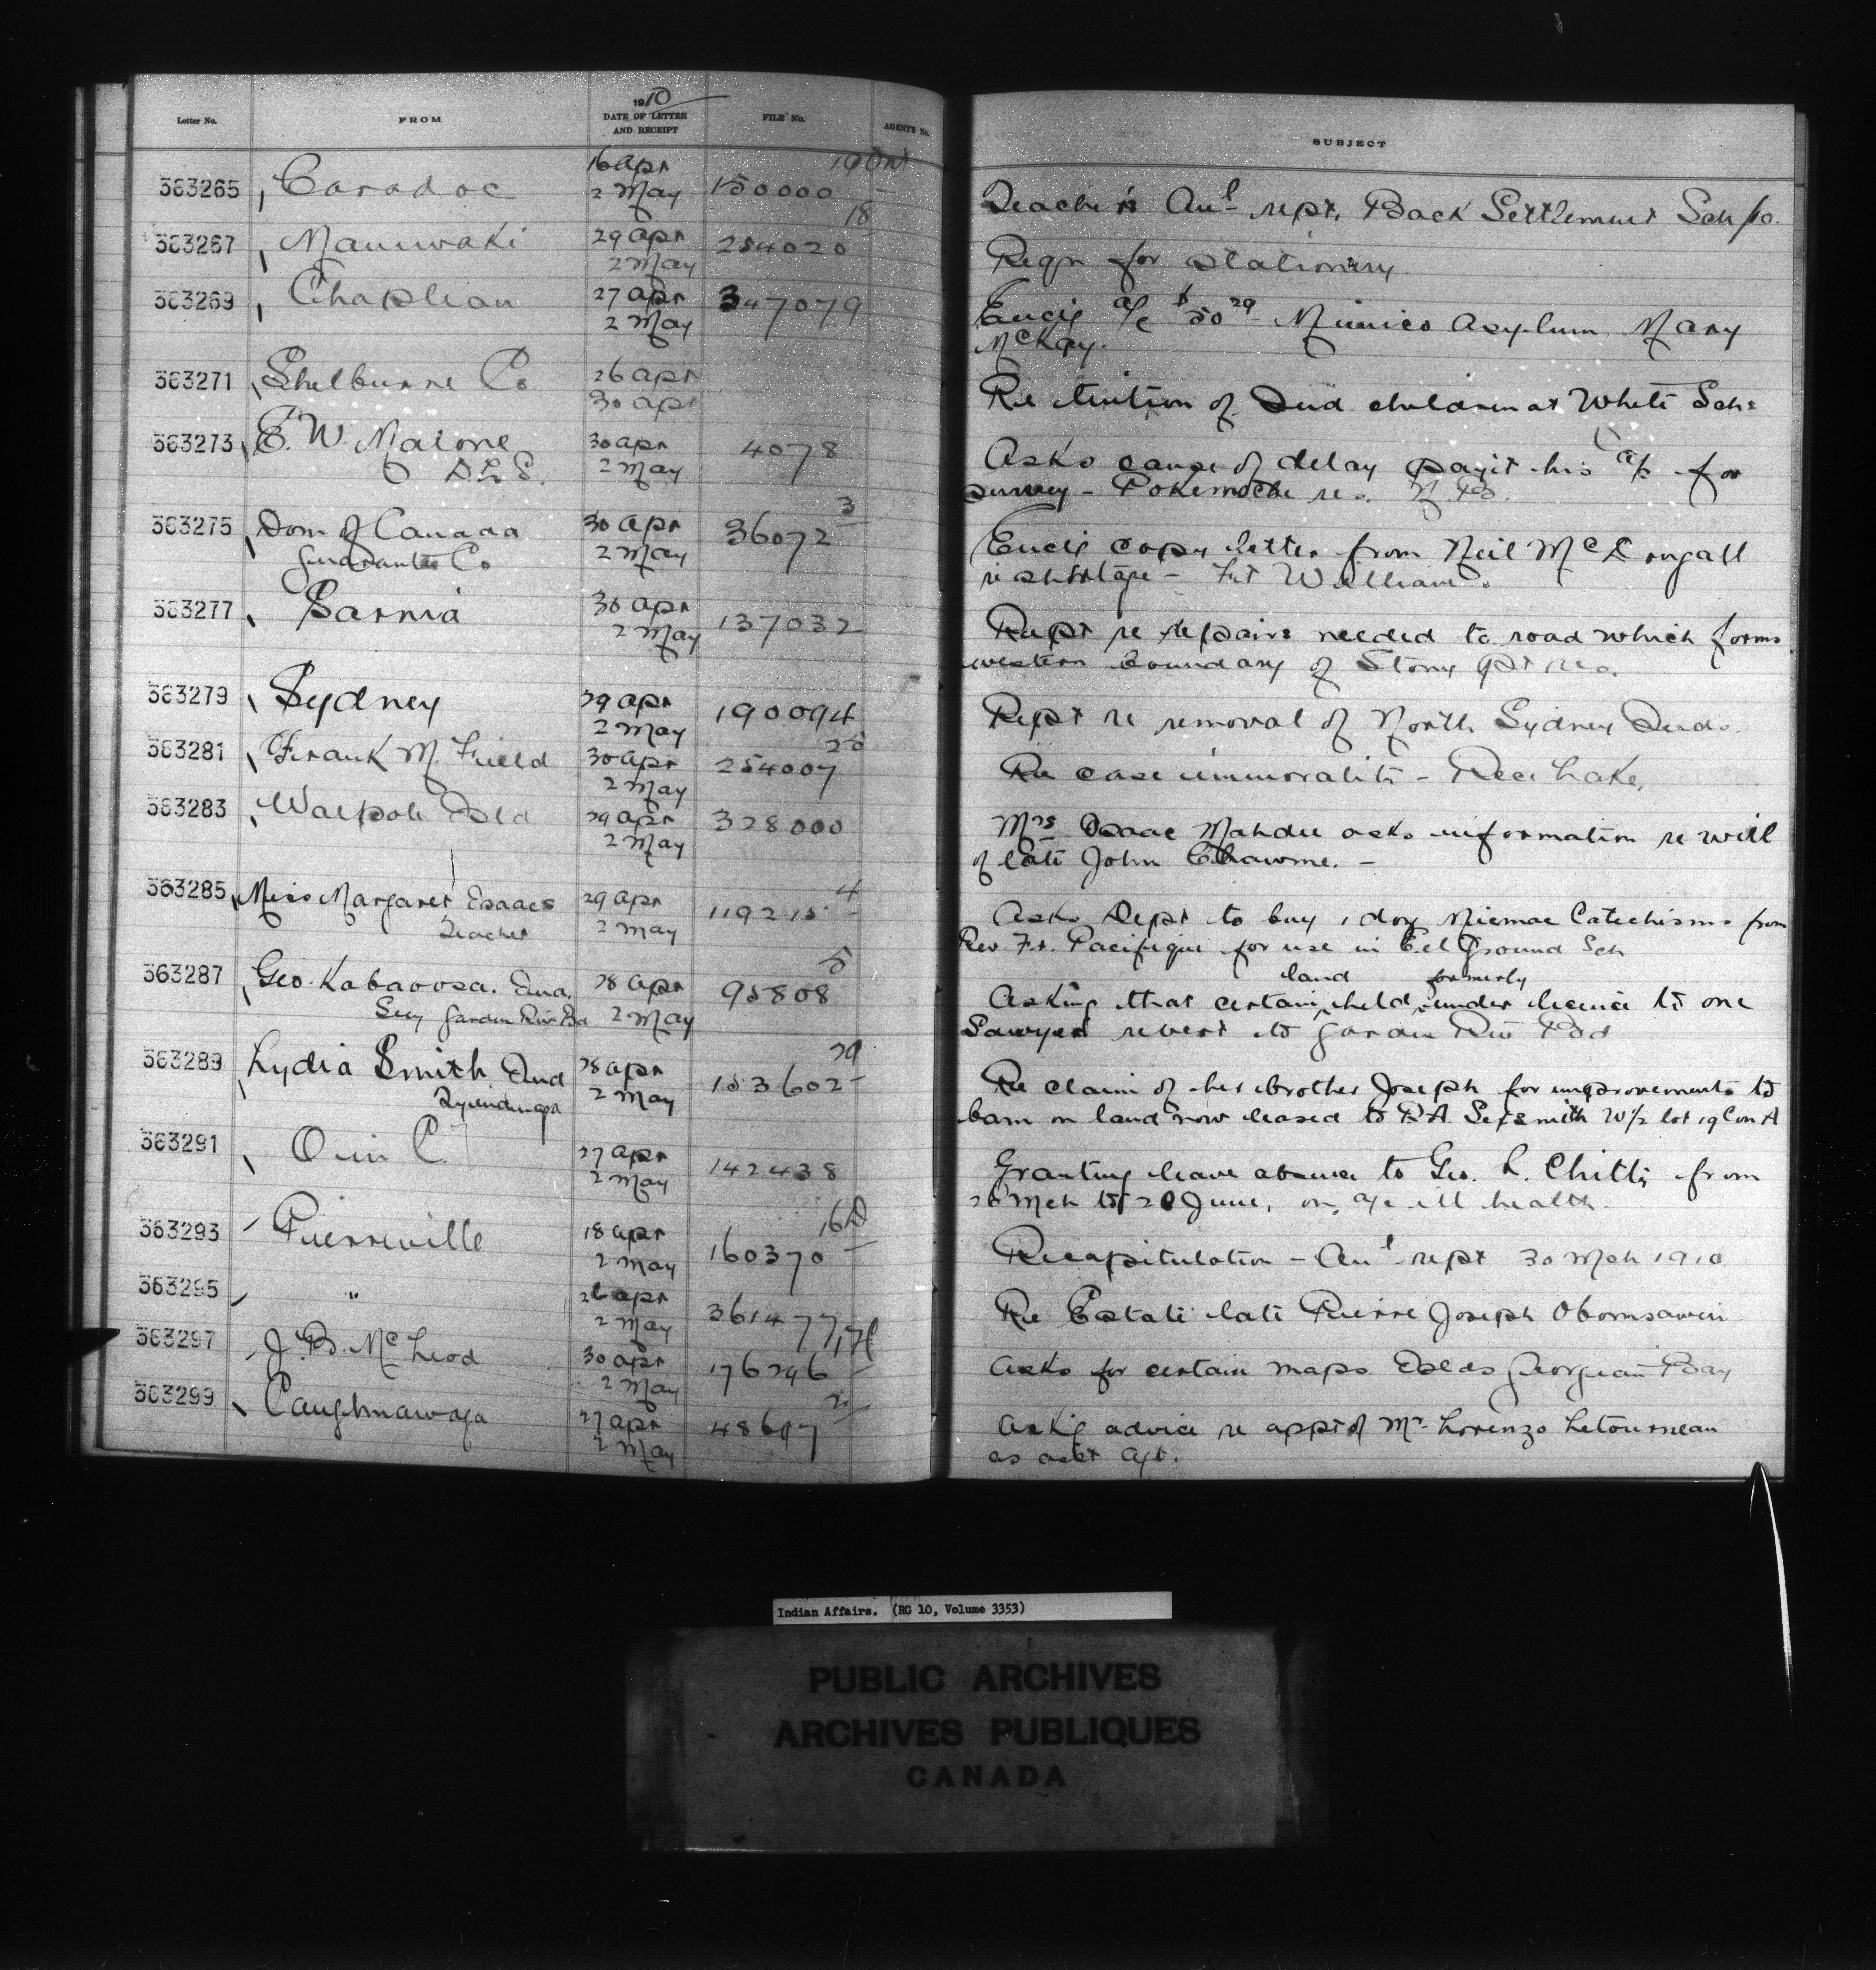 1910
Letter No. FROM DATE OF LETTER AND RECEIPT FILE No. AGENT'S No. SUBJECT
363265 Caradoc 16 Apr 2 May 150000 19 Ont Teacher's Anl rept. Back Settlement Sch
363267 Maniwaki 29 Apr 2 May 254020 18 Reqn for stationery
363269 Chapleau 27 Apr 2 May 347079 Encls a/c $50 29 Mimico Asylum Mary
McKay.
363271 Shelburne Co 26 Apr 30 Apr Re tuition of Ind children at White Schs
363273 E. W. Malone 30 Apr 2 May 4078 Asks cause of delay paying his a/c for
D.L.S. survey - Pokemouche res. N.B.
363275 Dom of Canada 30 Apr 2 May 36072 3 Encls copy letter from Neil McDougall
Guarantee Co re shortage - Ft William.
363277 Sarnia 30 Apr 2 May 137032 Rept re repairs needed to road which forms
western boundary of Stony Pt res.
363279 Sydney 29 Apr 2 May 190094 Rept re removal of North Sydney Inds.
363281 Frank M. Field 30 Apr 2 May 254007 28 Re case immorality - Rice Lake.
363283 Walpole Isld 29 Apr 2 May 328000 Mrs Isaac asks information re will
of late John
363285 Miss Margaret Isaacs 29 Apr 2 May 119215 4 Asks Dept to buy 1 doz Micmac Catechisms from
Teacher Rev. Fr. Pacifique for use in Eel Ground Sch
363287 Geo. Kabaoosa. Ind. 28 Apr 2 May 95808 5 Asking that certain land held formerly under license to one
Secy Garden Riv Bd Sawyer revert to Garden Riv Bd
363289 Lydia Smith Ind 28 Apr 2 May 153602 29 Re claim of her brother Joseph for improvements to
Tyendinaga barn on land now leased to R.A. Sexsmith W½ lot 19 Con A
363291 O in C. 27 Apr 2 May 142438 Granting leave absence to Geo. L. Chitty from
20 Mch to 20 June, on a/c ill health.
363293 Pierreville 18 Apr 2 May 160370 16 Recapitulation - Anl rept 30 Mch 1910
363295 " 26 Apr 2 May 361477 Re Estate late Pierre Joseph Obomsawin
363297 J. B. McLeod 30 Apr 2 May 176296 Asks for certain maps Islds Georgian Bay
363299 Caughnawaga 27 Apr 2 May 48647 2 Askg advice re appt of Mr. Lorenzo Letourneau
as asst Agt.
Indian Affairs. (RG 10, Volume 3353)
PUBLIC ARCHIVES
ARCHIVES PUBLIQUES
CANADA